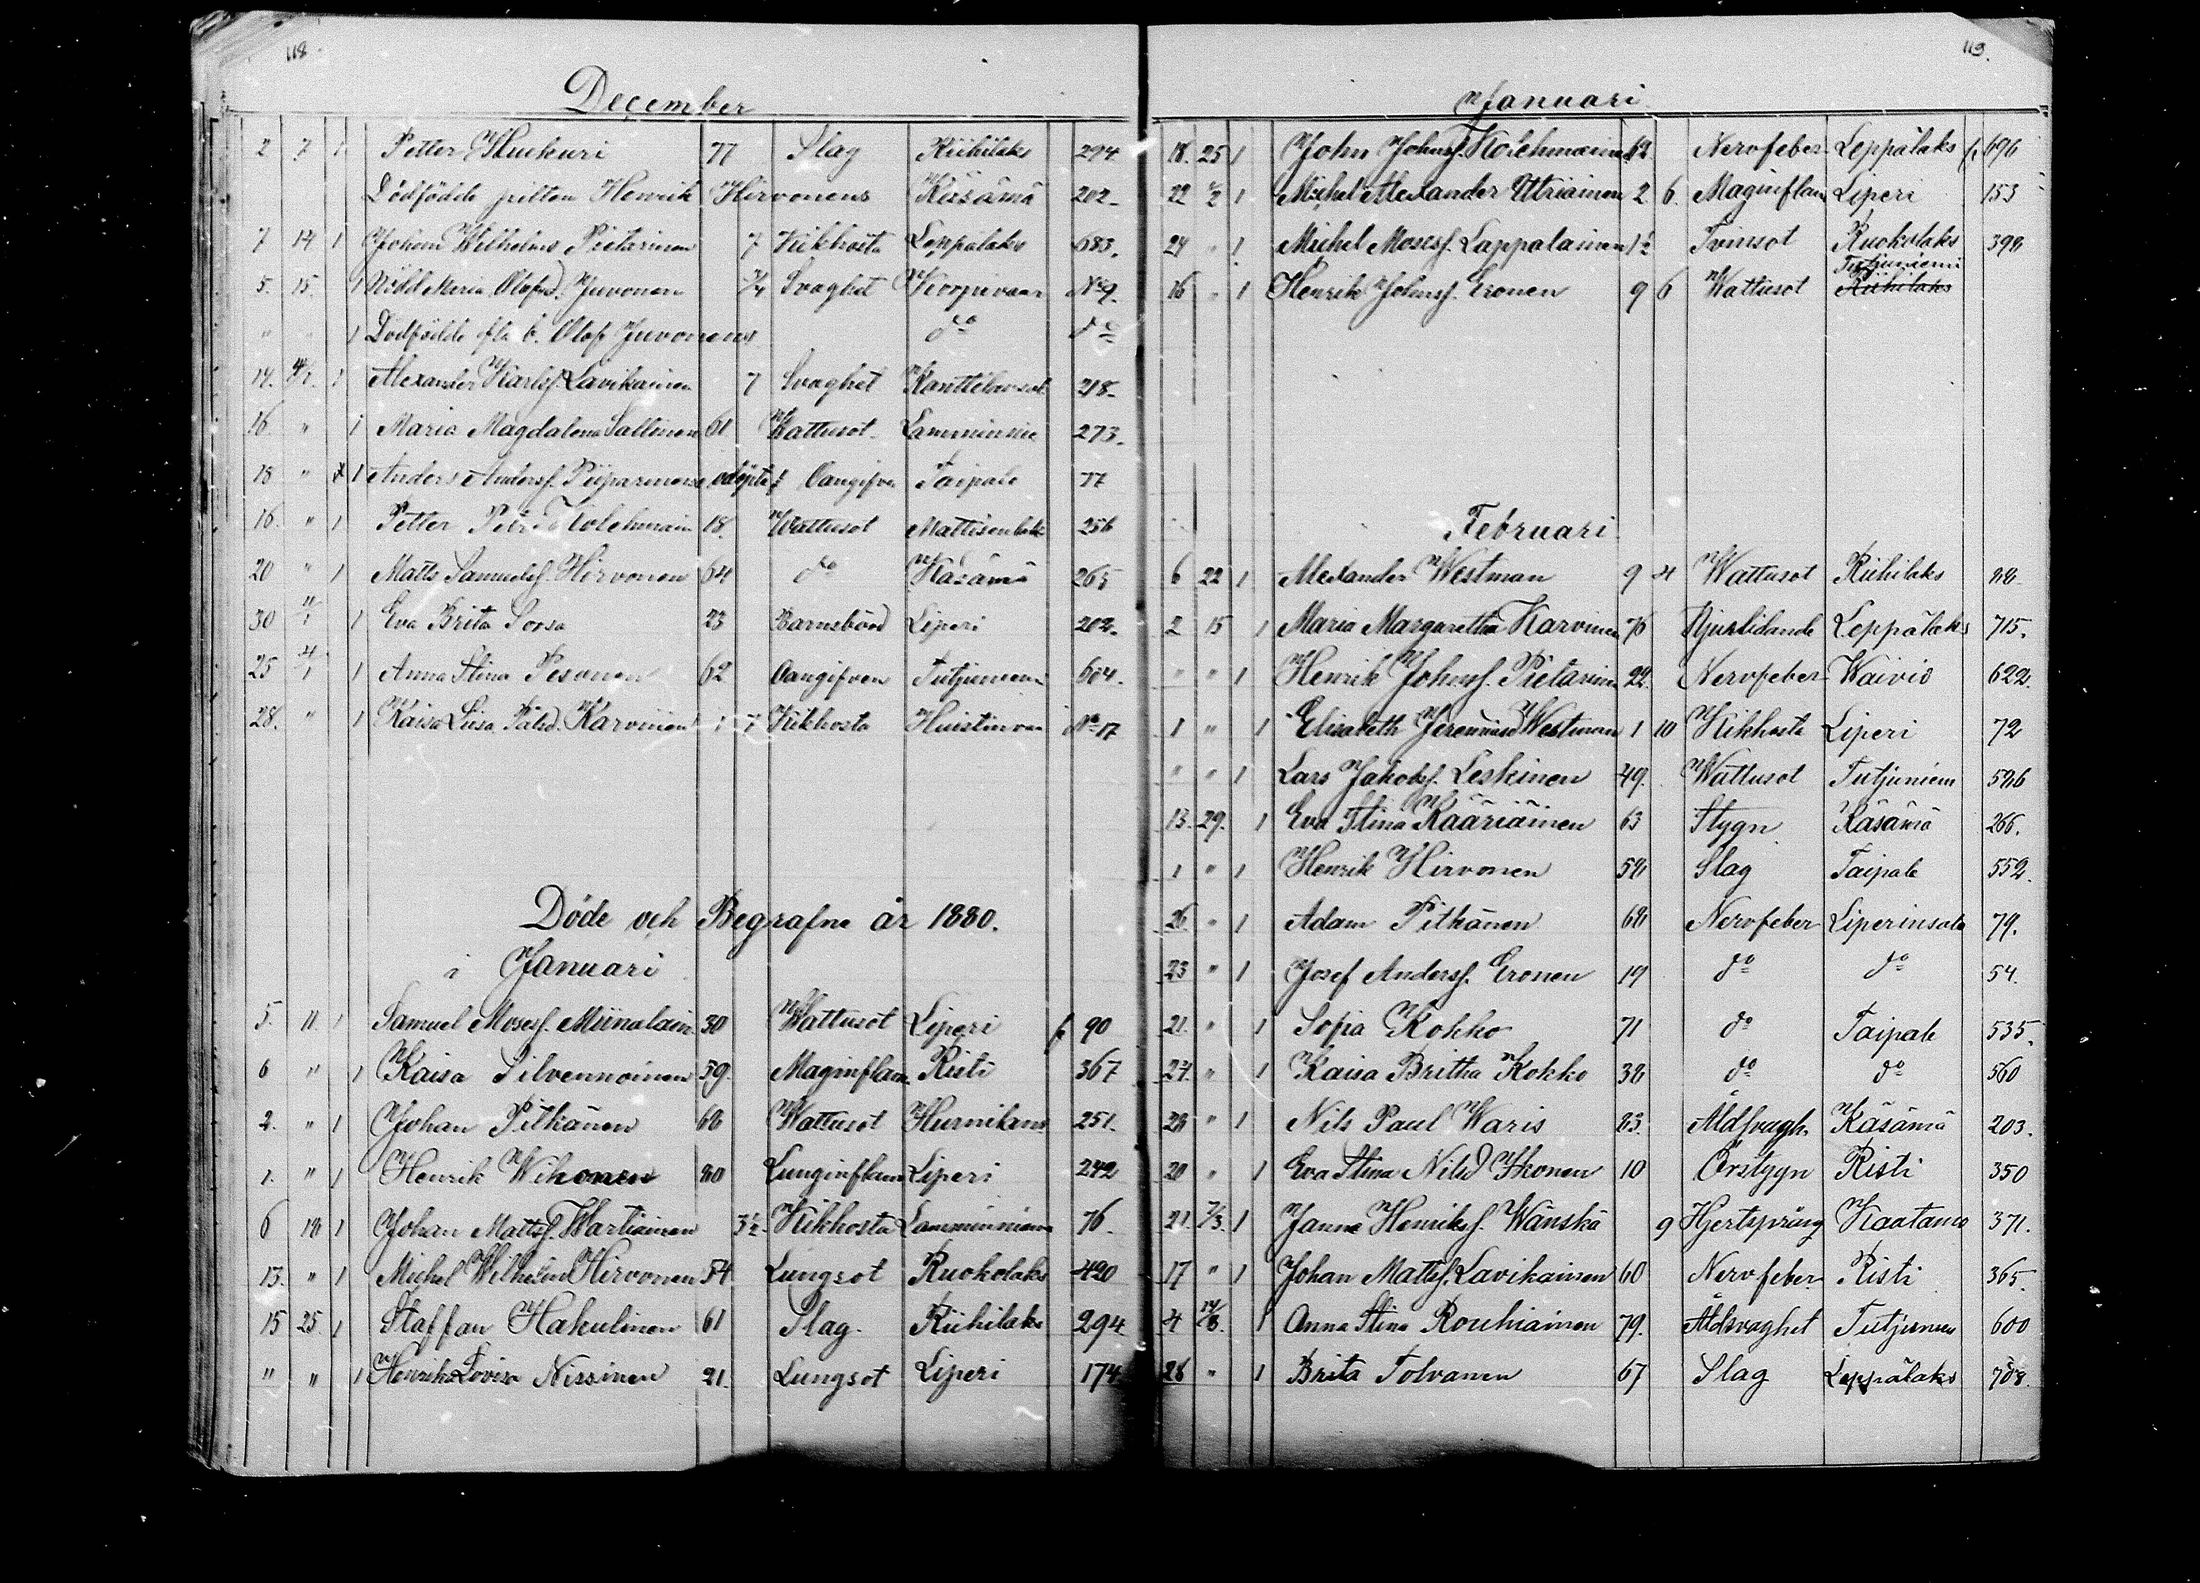 118
December
2 7 1 Petter Hukuri 77 Slag Riihilaks 294
Dödfödde pilten Henrik Hirvonens Käsämä 202
7 14 1 Johan Wilhelms Pietarinen 7 Kikhosta Leppälaks 683.
5. 15. 1 Maria Olofsd. Juvonen Svaghet Korpivaar No 9.
" " 1 Dödfödde fl. b. Olof Juvonens do do
14. 4/1. 1 Alexander Karlsf. Lavikainen 7 Svaghet 218
16. " 1 Maria Magdalena Sallinen 61 Wattusot Lamminnie 273.
18 " 1 Anders Andersf. Piiparinens odöpta Oangifven Taipale 77
16. " 1 Petter Petri Kolehmain 18. Wattusot Mattisenlaks 256
20 " 1 Matts Samuelsf. Hirvonen 64 do Käsämä 265
30 11/1 1 Eva Brita Sorsa 23 Barnsbörd Liperi 202.
25 4/1 1 Anna Stina Pesonen 62 Oangifven Tutjuniem 604.
28. " 1 Kaisa Liisa Pålsd. Karvinen 1 7 Kikhosta No 17
Döde och Begrafne år 1880.
i Januari
5. 11. 1 Samuel Mosesf. Miinalain 30 Wattusot Liperi f 90
6 " 1 Kaisa Silvennoinen 59. Maginflam Risti 367
2. " 1 Johan Pitkänen 66 Wattusot Hurnikans 251.
1. " 1 Henrik Wihonen 80 Lunginflam Liperi 242
6 18 1 Johan Mattsf. Wartiainen 3 1/2 Kikhosta Lamminniem 76
13. " 1 Michel Wilhelm Hirvonen 54 Lungsot Ruokolaks 420
15 25 1 Staffan Hakulinen 61 Slag. Riihilaks 294
" " 1 Henrika Lovisa Nissinen 21. Lungsot Liperi 174
119.
Januari
18. 25 1 John Johnsf. Kolehmainen 62 Nervfeber Leppälaks f. 696
22 1/2 1 Michel Alexander Utriainen 2 6. Maginflam Liperi 153
24 " 1 Michel Mosesf. Lappalainen 1 1/2 Tvinsot Ruokolaks 398
16 " 1 Henrik Johnsf. Eronen 9 6 Wattusot Tutjuniemi Riihilaks
Februari
6 22 1 Alexander Westman 9 4 Wattusot Riihilaks 88
2 15 1 Maria Margaretha Karvinen 76 Njurlidande Leppälaks 715.
" " 1 Henrik Johnsf. Pietarinen 22. Nervfeber Waivio 622.
1 " 1 Elisabeth Jeremiasd Westman 1 10 Kikhosta Liperi 72
" " 1 Lars Jakobsf. Leskinen 49. Wattusot Tutjuniem 586
13. 29. 1 Eva Stina Kääriäinen 63 Stygn Käsämä 266.
1 " 1 Henrik Hirvonen 58 Slag Taipale 552.
26 " 1 Adam Pitkänen 68 Nervfeber Liperinsalo 79.
23 " 1 Josef Andersf. Eronen 19 do do 54.
21. " 1 Sofia Kokko 71 do Taipale 535.
24. " 1 Kaisa Britha Kokko 38 do do 560
28 " 1 Nils Paul Waris 83. Åldsvagh. Käsämä 203.
20 " 1 Eva Stina Nilsd Ikonen 10 Örstygn Risti 350
21. 7/3. 1 Janne Henriksf. Wänskä 9 Hjertsprång Kaatamo 371.
17 " 1 Johan Mattsf. Lavikainen 60 Nervfeber Risti 365.
4 14/3. 1 Anna Stina Rouhiainen 79. Åldsvaghet Tutjuniem 600
26 " 1 Brita Tolvanen 67 Slag Leppälaks 708.